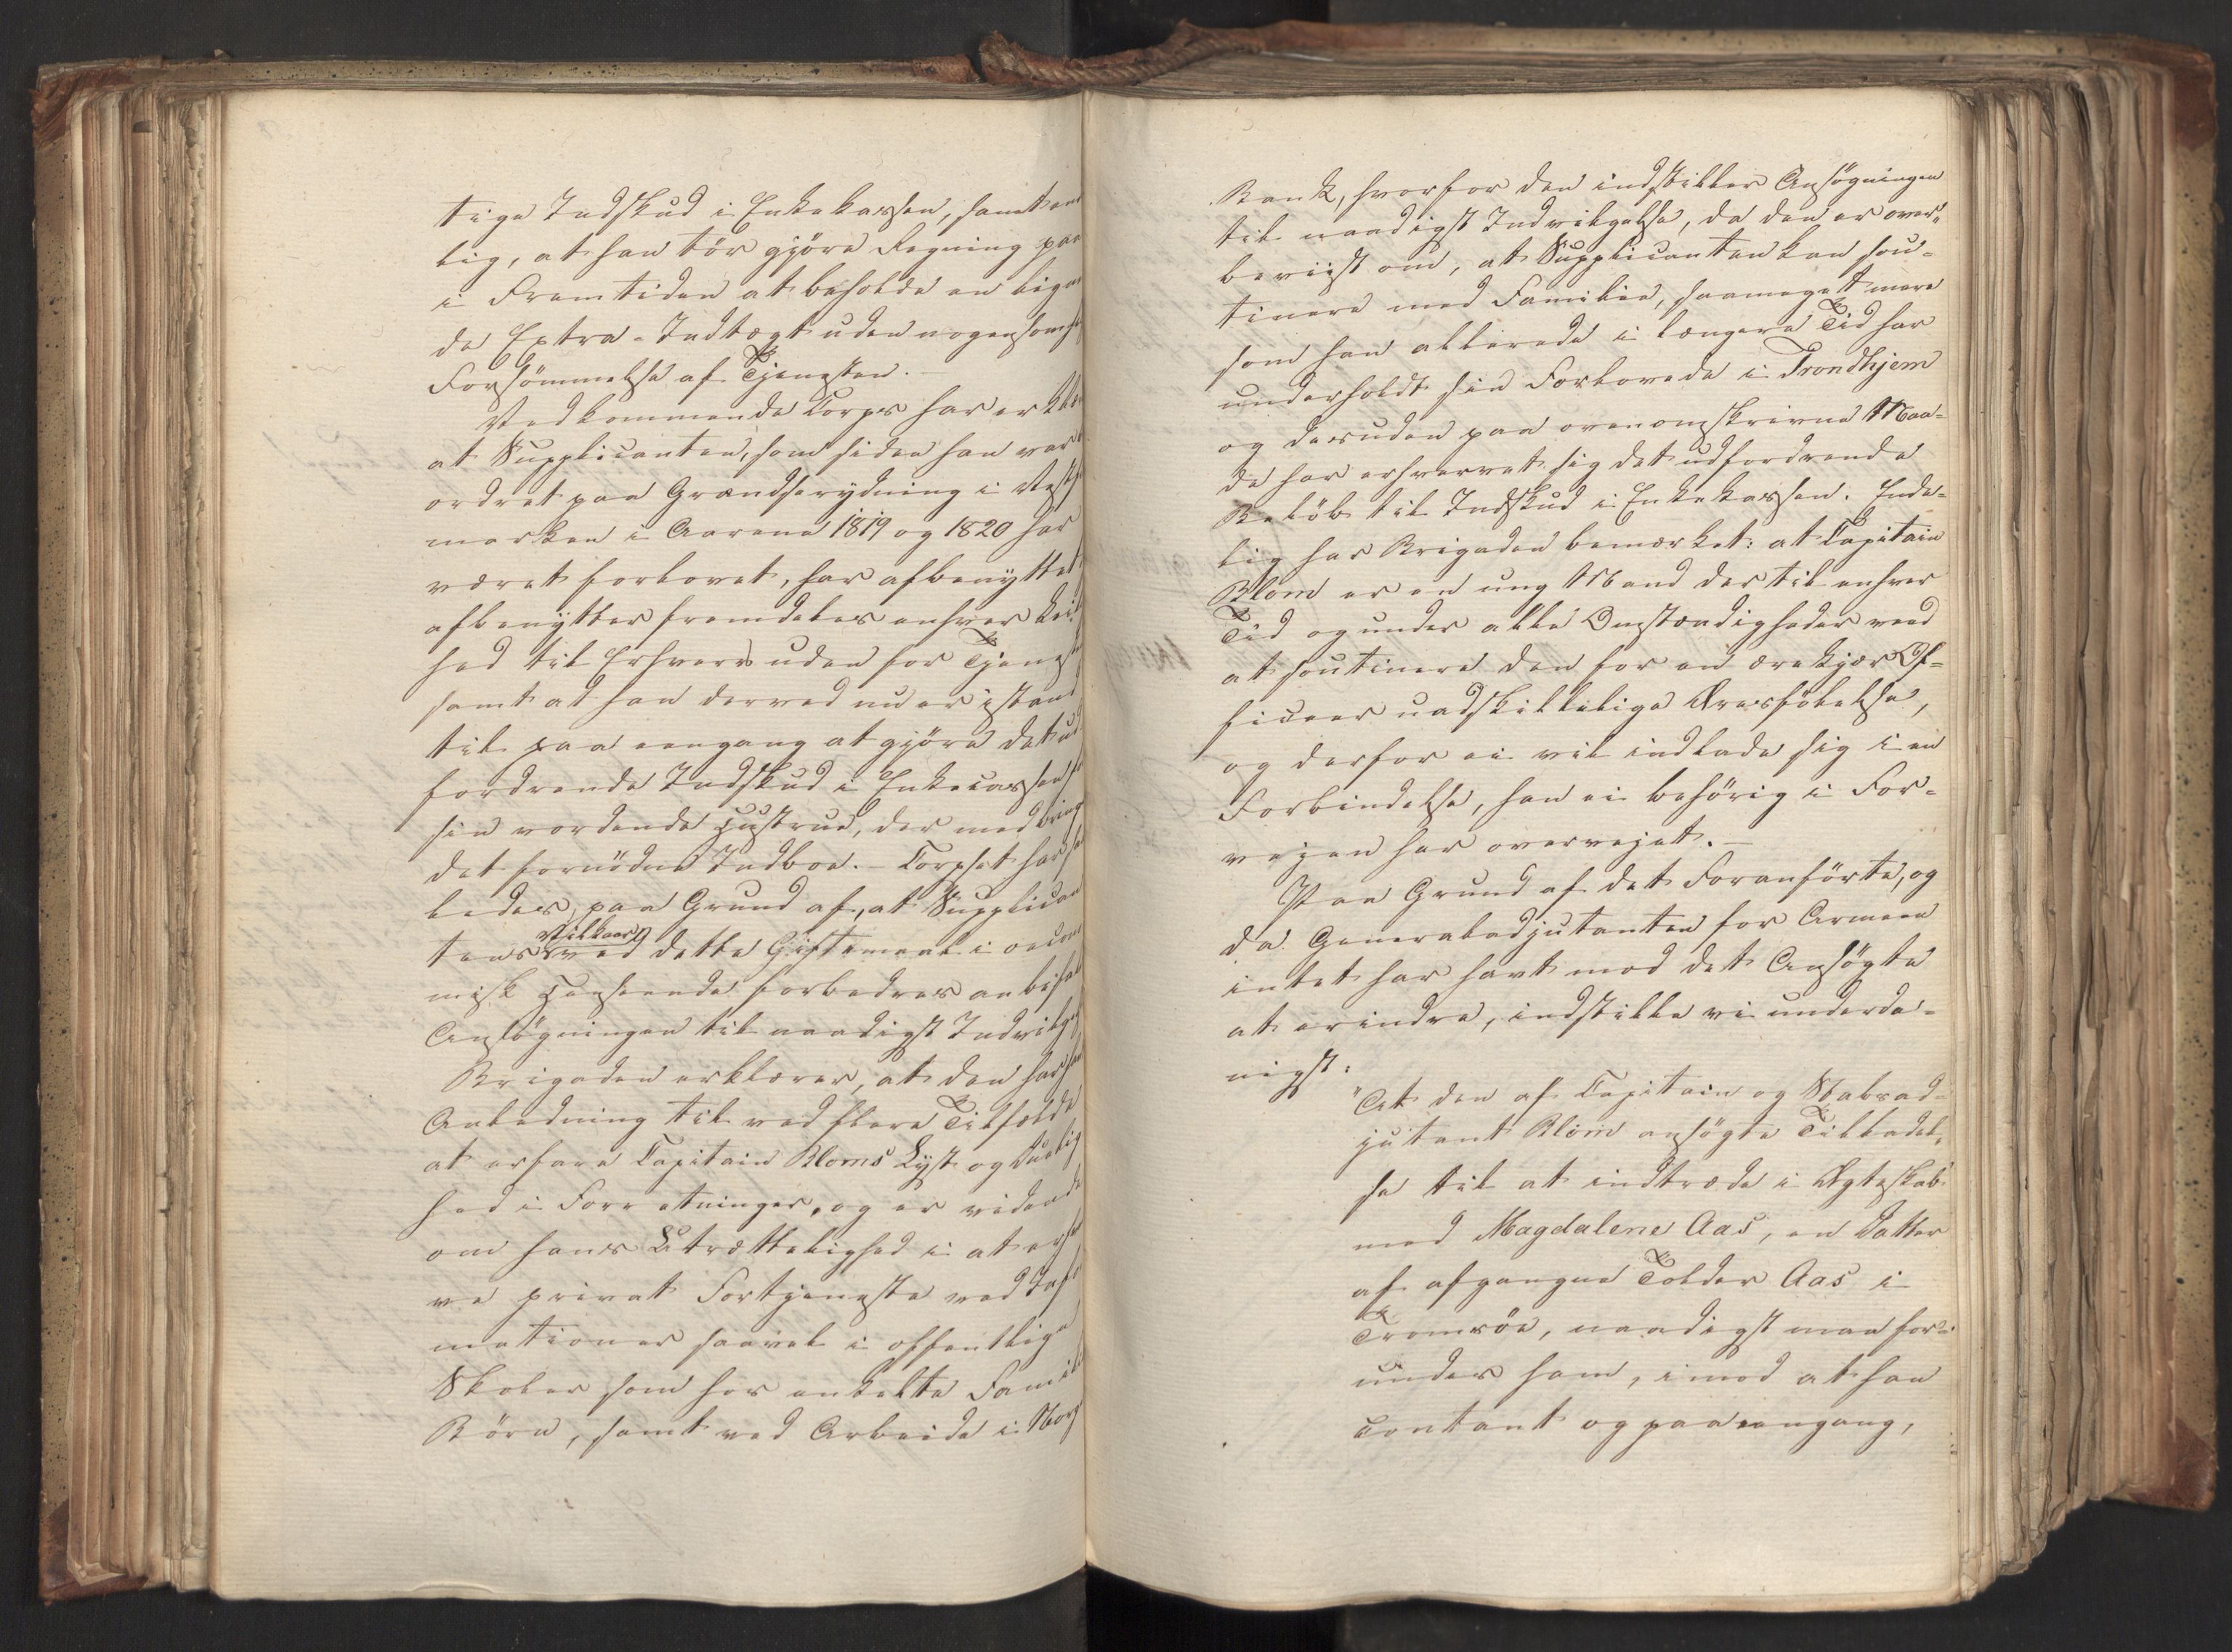 tige Indskud i Enkekassen, samt ende
lig, at han tör gjöre Regning paa
i Fremtiden at beholde en lignen
de Extra-Indtægt uden nogensomhe
Forsömmelse af Tjenesten.
Vedkommende Corps har erklæ
at Supplicanten, som siden han var
ordret paa Grændserydning i
marken i Aarene 1819 og 1820 har
været forlovet, har afbenyttet
afbenytter fremdeles enhver Lei
hed til Erhverv uden for Tjenest
samt at han derved nu er istand
til paa eengang at gjöre det ud
fordrende Indskud i Enkecassen f
sin vordende Hustrue, der medbring
det fornödne Indboe. - Corpset har saa
ledes, paa Grund af, at Supplican
tens Vilkaar ved dette Giftermaal i oecono
misk Henseende forbedres anbefal
Ansögningen til naadigst Indvilgel
Brigaden erklærer, at den har hav
Anledning til ved flere Tilfælde
at erfare Capitain Bloms Lyst og Duelig
hed i Forretninger, og er vidende
om hans Utrættelighed i at erhver
ve privat Fortjeneste ved Infor
mationer saavel i offentlige
Skoler som hos enkelte Famili
Börn, samt ved Arbeide i Norg
Bank, hvorfor den indstiller Ansögningen
til naadigst Indvilgelse, da den er over-
beviist om, at Supplicanten kan sou-
tinere med Familie, saameget mere
som han allerede i længere Tid har
underholdt sin Forlovede i Trondhjem
og desuden paa ovenomskrevne Maa-
de har erhvervet sig det udfordrende
Belöb til Indskud i Enkekassen. Ende-
lig har Brigaden bemærket: at Capitain
Blom er en ung Mand der til enhver
Tid og under alle Omstændigheder veed
at soutinere den for en ærekjær Of-
ficeer uadskillelige Æresfölelse,
og derfor ei vil indlade sig i en
Forbindelse, han ei behörig i For-
vejen har overvejet.
Paa Grund af det Foranförte, og
da Generaladjutanten for Armeen
intet har havt mod det Ansögte
at erindre, indstille vi underda-
nigst:
"At den af Capitain og Stabsad-
jutant Blom ansögte Tilladel-
se til at indtræde i Ægteskab
med Magdalene Aas, en Datter
af afgangne Tolder Aas i
Tromsöe, naadigst maa for-
undes ham, imod at han
contant og paa eengang,